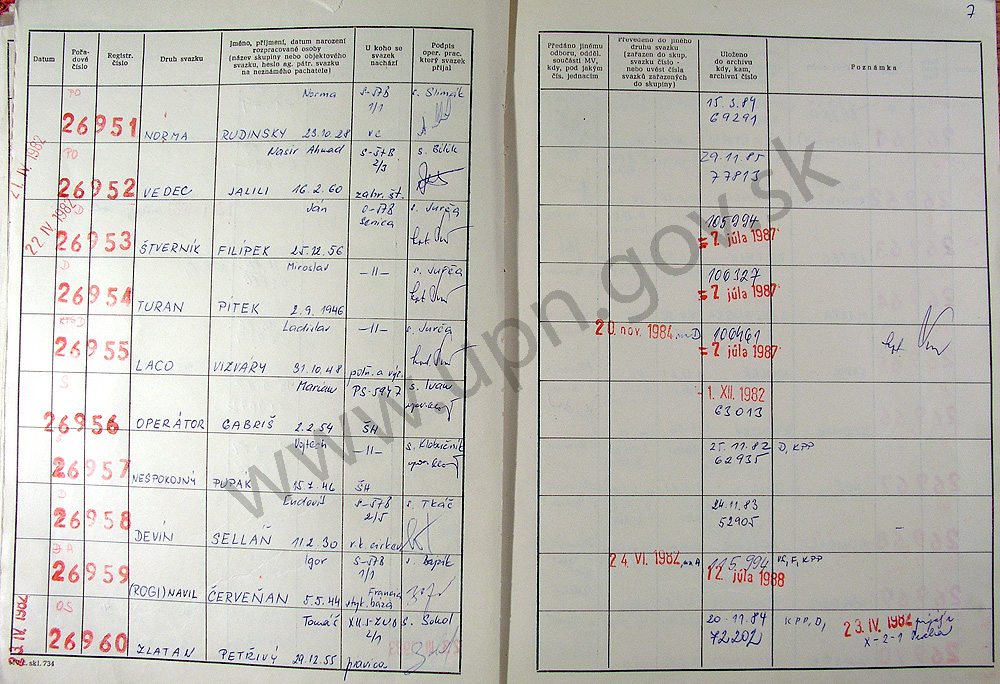 7
Datum
Pořadové číslo
Registr. číslo
Druh svazku
Jméno, příjmení, datum narození rozpracované osoby (název skupiny nebo objektového svazku, heslo ag. pátr. svazku na neznámého pachatele)
U koho se svazek nachází
Podpis oper. prac. který svazek přijal
Předáno jinému odboru, odděl. součásti MV, kdy, pod jakým čís. jednacím
Převedeno do jiného druhu svazku (zařazen do skup, svazku číslo - nebo uvést čísla svazků zařazených do skupiny)
Uloženo do archivu kdy, kam, archivní číslo
Poznámka
21. IV. 1982
PO
26951 NORMA RUDINSKY Norma 23.10.28 S-ŠTB 1/1 VC s. Slimák
15.3.84 69291
PO
26952 VEDEC JALILI Nasir Ahmad 16.2.60 S-ŠTB 2/3 zahr. št. s. Bilik
29.11.85 77813
22. IV. 1982
D
26953 ŠTVERNÍK FILÍPEK Ján 25.12.56 O-ŠTB Senica s. Jurča
105994 = 7 júla 1987
D
26954 TURAN PITEK Miroslav 2.9.1946 -11- s. Jurča
106327 = 7 júla 1987
26955 LACO VIZVÁRY Ladislav 31.10.48 -11- s. Jurča
20. nov. 1984 D
106461 = 7 júla 1987
S
26956 OPERÁTOR GABRIŠ Marian 2.2.54 PS-5947 ŠH s. Ivan
- 1. XII. 1982 63013
26957 NESPOKOJNÝ PUPÁK Vojtech 15.7.46 -11- ŠH s. Klobučník
25.11.82 62935 D, KPP
D
26958 DEVÍN SELLÁŇ Ľudovít 11.2.30 S-ŠTB 2/5 r.k. cirkev s. Tkáč
24.11.83 52905
26959 (ROGI) NAVIL ČERVEŇAN Igor 5.5.44 S-ŠTB 1/1 Francia styk. báza s. Bajzík
24. VI. 1982 A
115.994 12. júla 1988 F, KPP
23. IV. 1982
OS
26960 ZLATAN PETŘIVÝ Tomáš 29.12.55 XII.S-ZNB 2/1 pravica s. Sokol
20.11.84 72202 KPP, D, 23. IV. 1982
X-2-1
skl. 734
www.upn.gov.sk